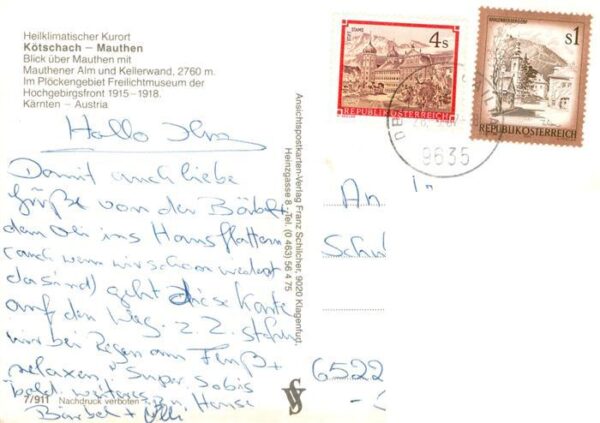 Heilklimatischer Kurort
Kötschach – Mauthen
Blick über Mauthen mit
Mauthener Alm und Kellerwand, 2760 m.
Im Plöckengebiet Freilichtmuseum der
Hochgebirgsfront 1915–1918.
Kärnten – Austria
Hallo
Damit auch liebe
Grüße von der Bärbel +
dem Uli ins Haus flattern
(auch wenn wir schon wieder
da sind) geht diese Karte
auf den Weg. z. Z. sitzen
wir bei Regen am Fluß +
relaxen. Super. So bis
bald. weiteres zu Hause
Bärbel + Ulli
7/911 Nachdruck verboten
Ansichtspostkarten-Verlag Franz Schilcher, 9020 Klagenfurt,
Heinzgasse 8 - Tel. (0 463) 56 4 75
STAMS
4 S
REPUBLIK ÖSTERREICH
S 1
REPUBLIK ÖSTERREICH
9635
An
in
Schu
6522